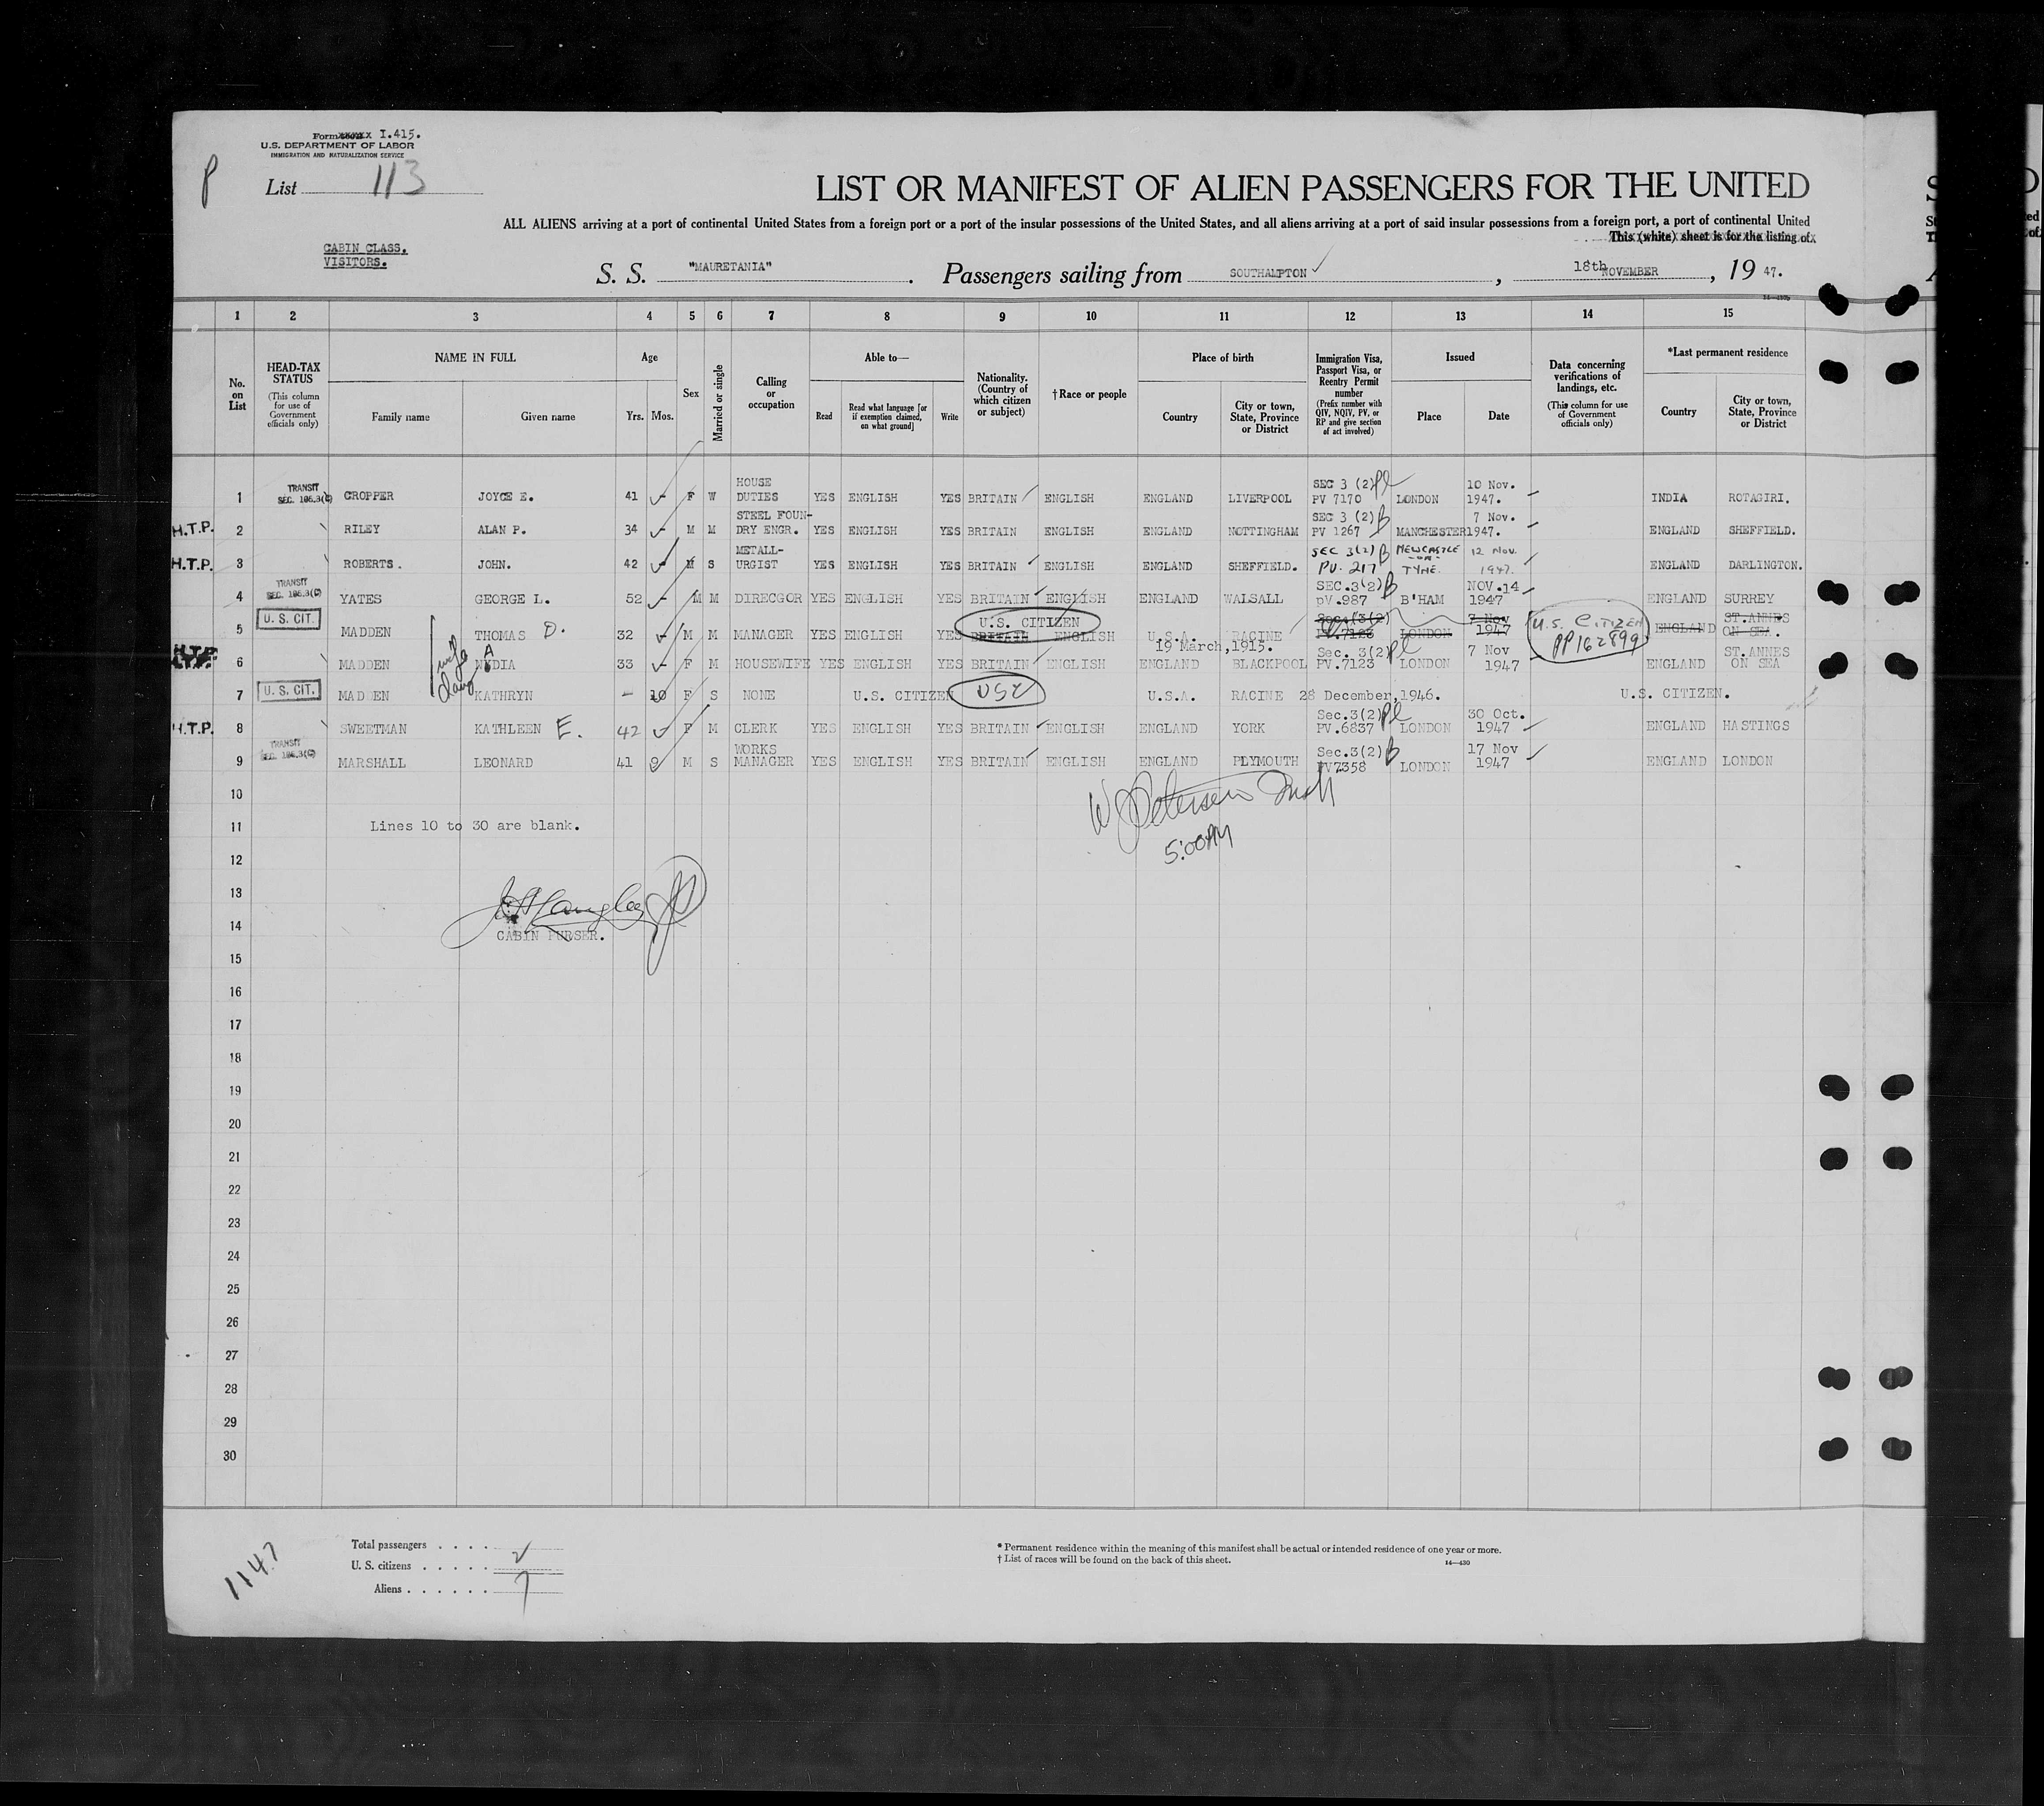 Form I.415.
U.S. DEPARTMENT OF LABOR
IMMIGRATION AND NATURALIZATION SERVICE
P
List 113
LIST OR MANIFEST OF ALIEN PASSENGERS FOR THE UNITED
ALL ALIENS arriving at a port of continental United States from a foreign port or a port of the insular possessions of the United States, and all aliens arriving at a port of said insular possessions from a foreign port, a port of continental United
This (white) sheet is for the listing of
CABIN CLASS.
VISITORS.
S. S. "MAURETANIA". Passengers sailing from SOUTHAMPTON, 18th NOVEMBER, 19 47.
1 2 3 4 5 6 7 8 9 10 11 12 13 14 15
No. on List
HEAD-TAX STATUS (This column for use of Government officials only)
NAME IN FULL
Family name Given name
Age
Yrs. Mos.
Sex
Married or single
Calling or occupation
Able to—
Read
Read what language [or if exemption claimed, on what ground]
Write
Nationality. (Country of which citizen or subject)
†Race or people
Place of birth
Country
City or town, State, Province or District
Immigration Visa, Passport Visa, or Reentry Permit number (Prefix number with QIV, NQIV, PV, or RP and give section of act involved)
Issued
Place Date
Data concerning verifications of landings, etc. (This column for use of Government officials only)
*Last permanent residence
Country
City or town, State, Province or District
1 TRANSIT SEC. 186.3(C) CROPPER JOYCE E. 41 - F W HOUSE DUTIES YES ENGLISH YES BRITAIN ENGLISH ENGLAND LIVERPOOL SEC 3 (2) PV 7170 LONDON 10 Nov. 1947. INDIA ROTAGIRI.
H.T.P. 2 RILEY ALAN P. 34 - M M STEEL FOUN-DRY ENGR. YES ENGLISH YES BRITAIN ENGLISH ENGLAND NOTTINGHAM SEC 3 (2) PV 1267 MANCHESTER 7 Nov. 1947. ENGLAND SHEFFIELD.
H.T.P. 3 ROBERTS. JOHN. 42 - M S METALL-URGIST YES ENGLISH YES BRITAIN ENGLISH ENGLAND SHEFFIELD. SEC 3(2) PV. 217 NEWCASTLE -ON- TYNE. 12 Nov. 1947. ENGLAND DARLINGTON.
4 TRANSIT SEC. 186.3(C) YATES GEORGE L. 52 - M M DIRECGOR YES ENGLISH YES BRITAIN ENGLISH ENGLAND WALSALL SEC.3(2) PV.987 B'HAM NOV.14 1947 ENGLAND SURREY
5 U. S. CIT. MADDEN THOMAS D. 32 - M M MANAGER YES ENGLISH YES U.S. CITIZEN BRITAIN ENGLISH U.S.A. RACINE 19 March,1915. Sec.(3(2) PV.7123 LONDON 7 Nov 1947 U.S. CITIZEN PP162899 ENGLAND ST.ANNES ON SEA.
H.T.P. 6 MADDEN wife NADIA 33 - F M HOUSEWIFE YES ENGLISH YES BRITAIN ENGLISH ENGLAND BLACKPOOL Sec. 3(2) PV.7123 LONDON 7 Nov 1947 ENGLAND ST.ANNES ON SEA
7 U. S. CIT. MADDEN daug KATHRYN - 10 F S NONE U.S. CITIZEN USC U.S.A. RACINE 28 December,1946. U.S. CITIZEN.
H.T.P. 8 SWEETMAN KATHLEEN E. 42 - F M CLERK YES ENGLISH YES BRITAIN ENGLISH ENGLAND YORK Sec.3(2) PV.6837 LONDON 30 Oct. 1947 ENGLAND HASTINGS
9 TRANSIT SEC. 186.3(C) MARSHALL LEONARD 41 9 M S WORKS MANAGER YES ENGLISH YES BRITAIN ENGLISH ENGLAND PLYMOUTH Sec.3(2) PV7358 LONDON 17 Nov 1947 ENGLAND LONDON
10
11 Lines 10 to 30 are blank.
W Petersen
5:00PM
12
13
14
CABIN PURSER.
15
16
17
18
19
20
21
22
23
24
25
26
27
28
29
30
1147
Total passengers . . . .
U. S. citizens . . . . . 2
Aliens . . . . . . 7
* Permanent residence within the meaning of this manifest shall be actual or intended residence of one year or more.
† List of races will be found on the back of this sheet.
14—430